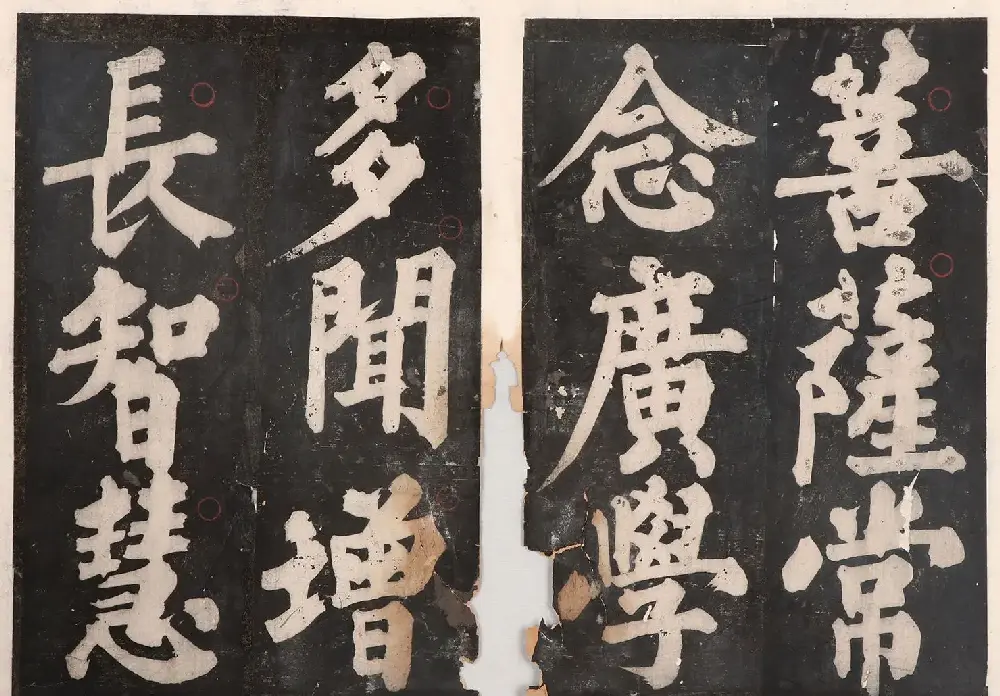 菩薩常
念廣學
多聞增
長智慧